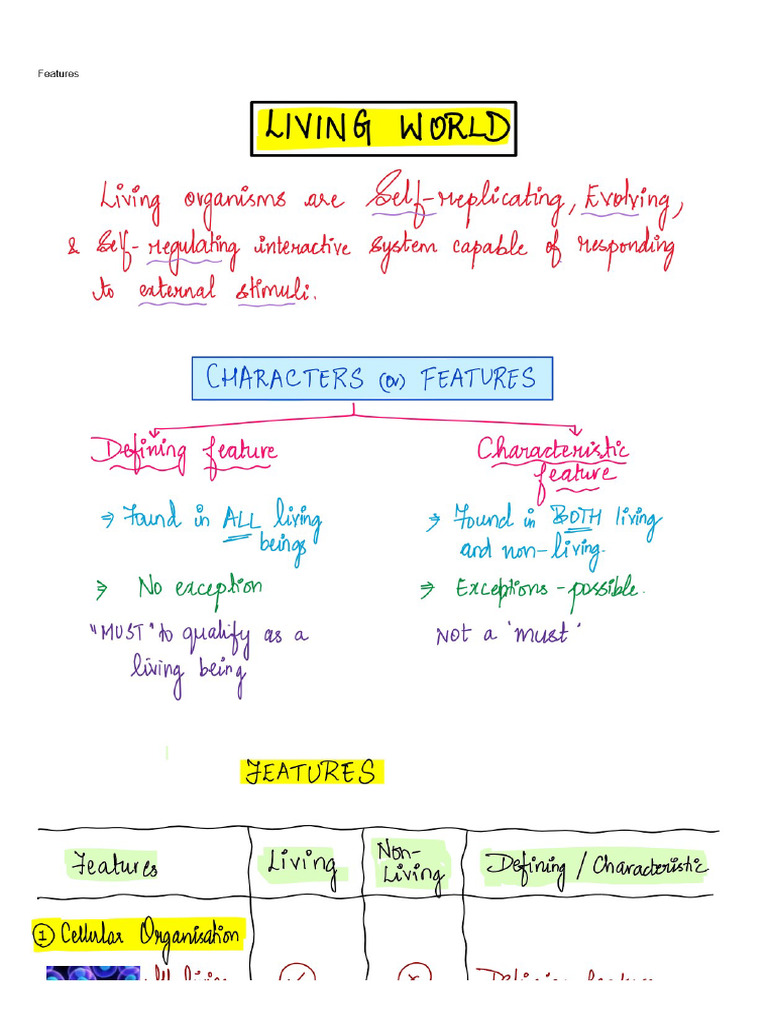 Features
LIVING WORLD
Living organisms are Self-replicating, Evolving,
& Self-regulating interactive system capable of responding
to external stimuli.
CHARACTERS (or) FEATURES
Defining feature
Characteristic
feature
⇒ Found in ALL living
beings
⇒ Found in BOTH living
and non-living.
⇒ No exception
⇒ Exceptions - possible.
"MUST" to qualify as a
living being
NOT a 'must'
FEATURES
Features Living Non- Defining / Characteristic
Living
① Cellular Organisation
All living ✓ × Defining feature